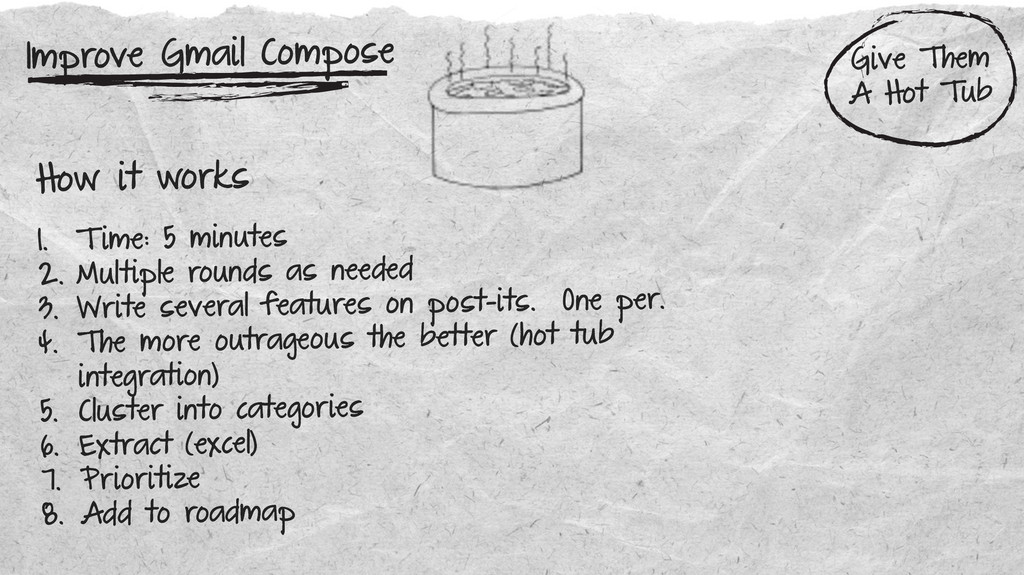 Improve Gmail Compose
Give Them
A Hot Tub
How it works
1. Time: 5 minutes
2. Multiple rounds as needed
3. Write several features on post-its. One per.
4. The more outrageous the better (hot tub
integration)
5. Cluster into categories
6. Extract (excel)
7. Prioritize
8. Add to roadmap